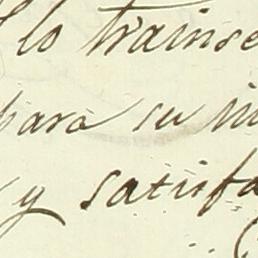 lo trainse
para su in
y satisfa